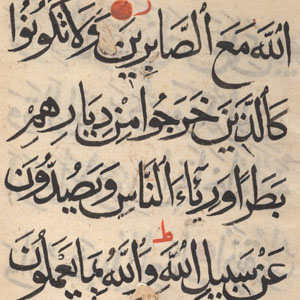 اللهَ مَعَ الصَّابِرِينَ وَلَا تَكُونُوا
كَالَّذِينَ خَرَجُوا مِنْ دِيَارِهِمْ
بَطَرًا وَرِيَاءَ النَّاسِ وَيَصُدُّونَ
عَنْ سَبِيلِ اللهِ ط وَاللهُ بِمَا يَعْمَلُونَ